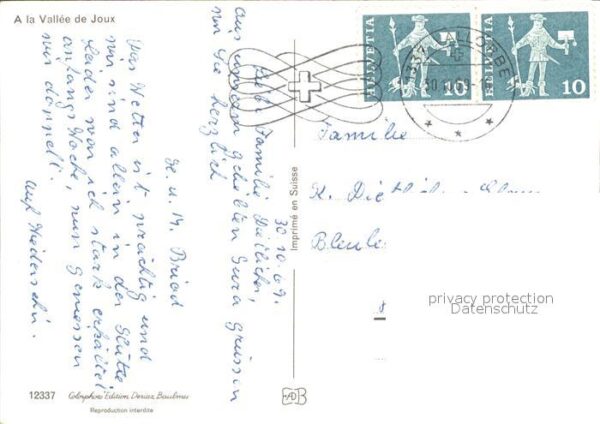 A la Vallée de Joux
HELVETIA 10
HELVETIA 10
VALLORBE
30.10.69
30.10.69.
Liebe Familie
aus unserem geliebten Jura grüssen
wir Sie herzlich
H. u. M. Briod
Das Wetter ist prächtig und
wir sind allein in der Hütte
Leider war ich stark erkältet
anfangs Woche, nun geniessen
wir doppelt.
Auf Wiedersehn.
Familie
K.
Imprimé en Suisse
privacy protection
Datenschutz
12337
Colorphoto Edition Deriaz Baulmes
Reproduction interdite